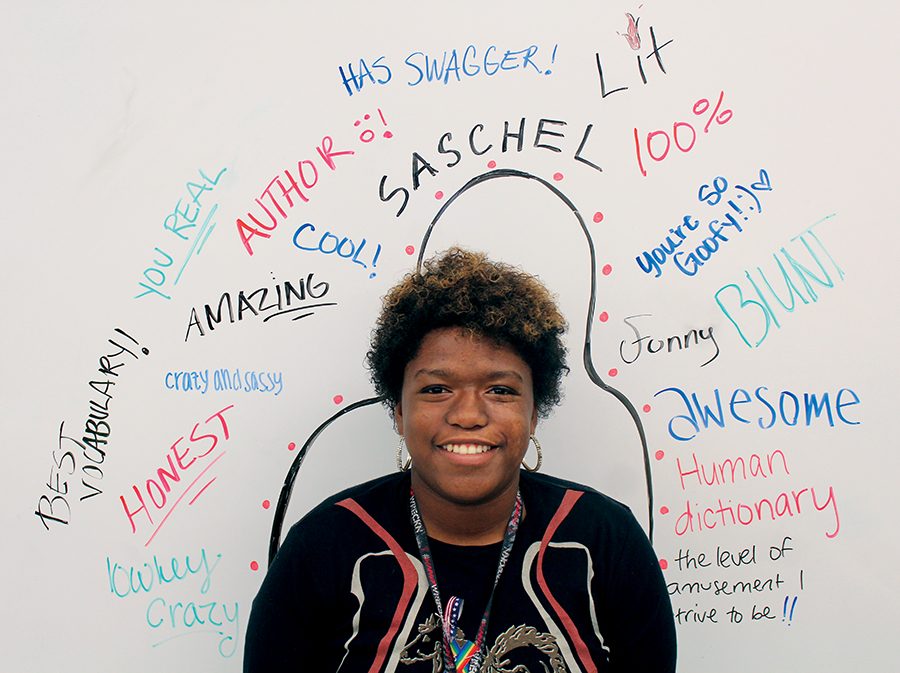 HAS SWAGGER!
Lit
AUTHOR!
SASCHEL
100%
YOU REAL
COOL!
you're so
Goofy! :) ♡
AMAZING
BlUNT
funny
BEST
VOCABULARY!
crazy and sassy
awesome
HONEST
Human
dictionary
lowkey
crazy
the level of
amusement I
strive to be!!